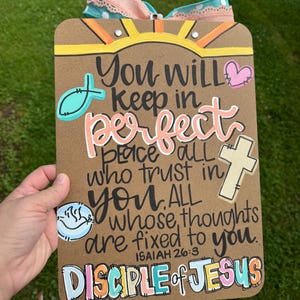 You will
keep in
perfect
peace all
who trust in
you, ALL
whose thoughts
are fixed to you.
ISAIAH 26:3
DISCIPLE of JESUS